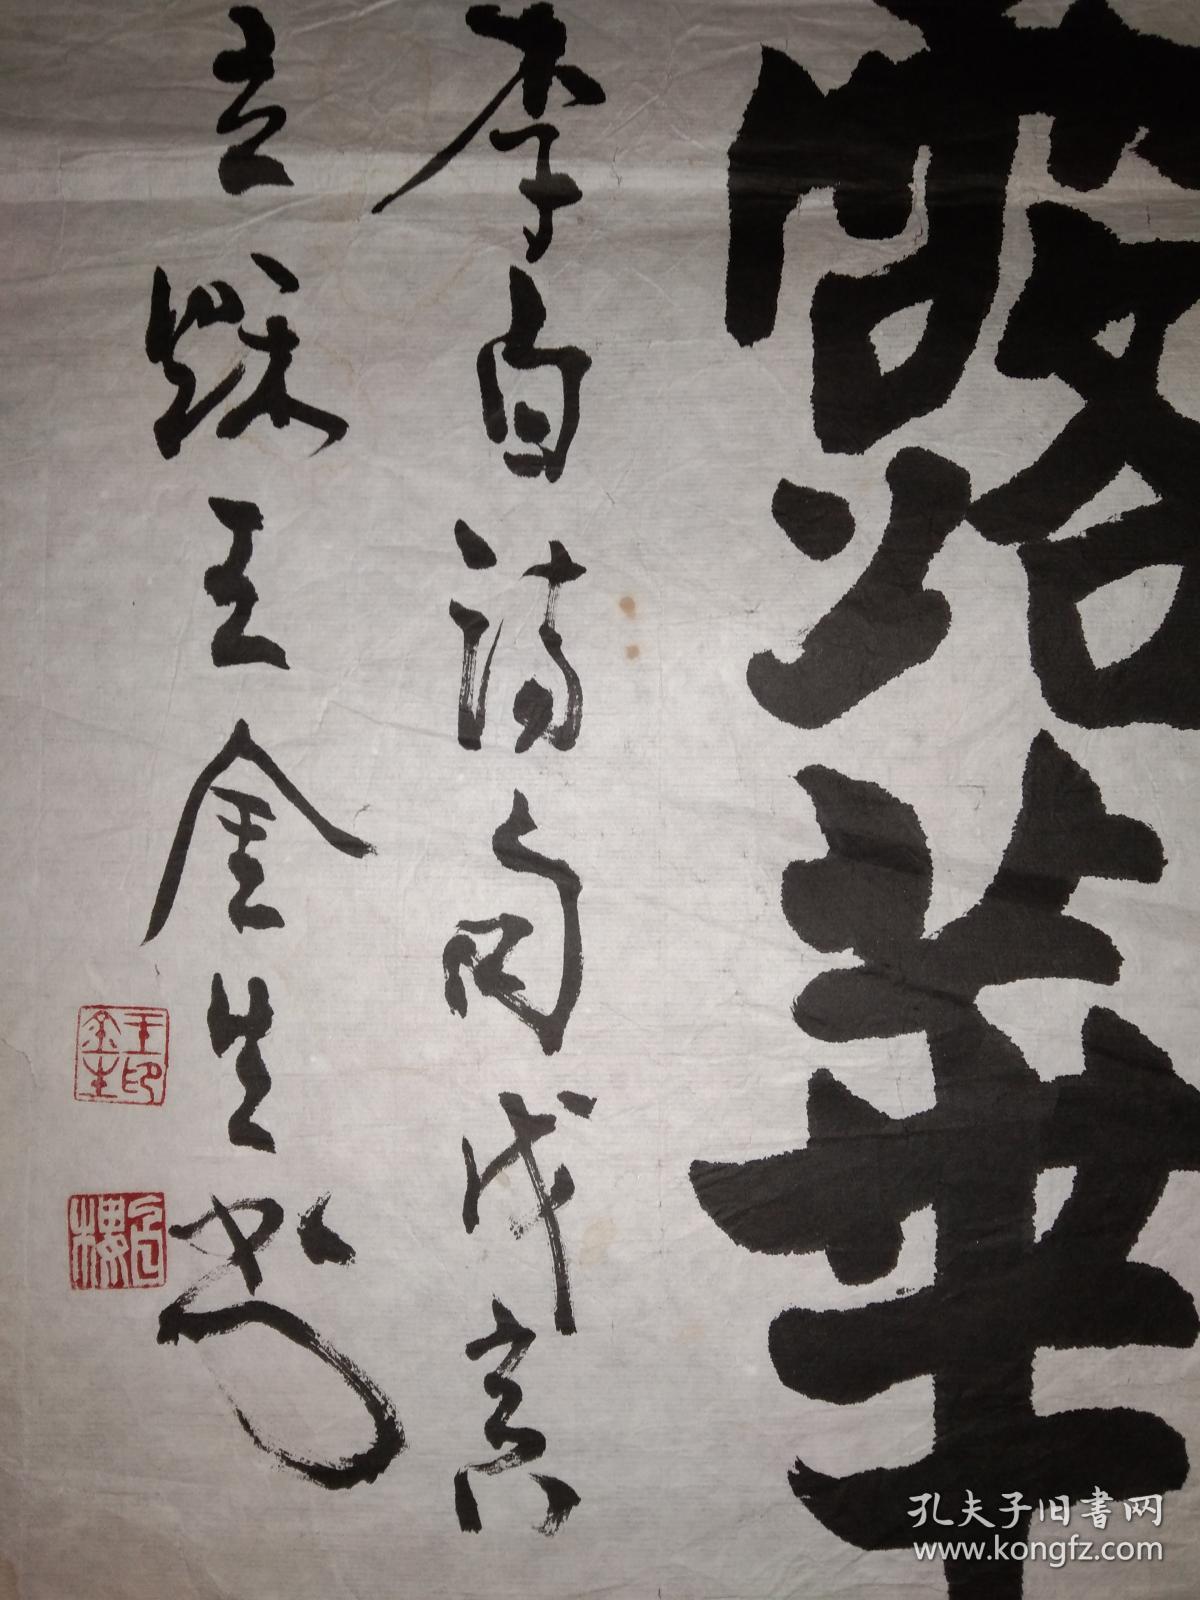 露華
李白詩句戊寅
立秋王金生書
王印金生
孔夫子旧書网
www.kongfz.com